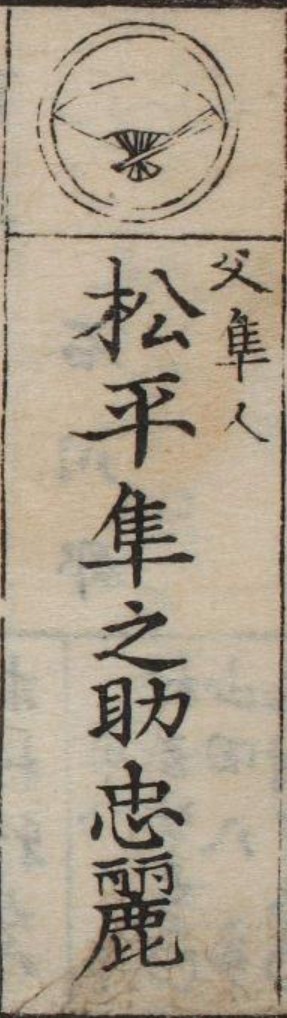 父隼人
松平隼之助忠麗